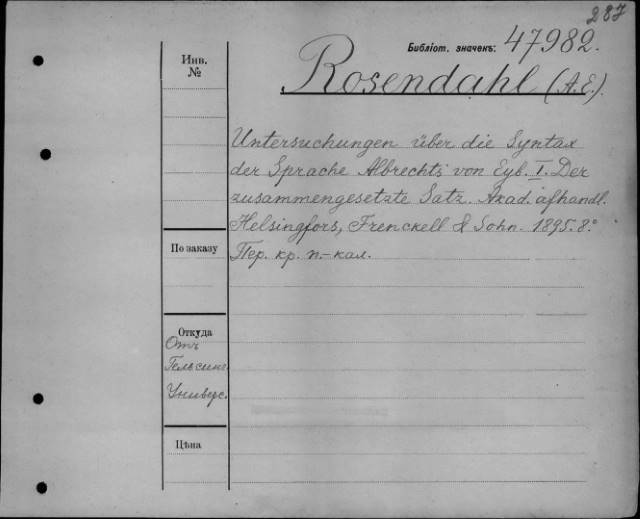 287
Библіот. значекъ: 47982.
Инв.
№
Rosendahl (A.E.).
Untersuchungen über die Syntax
der Sprache Albrechts von Eyb. I. Der
zusammengesetzte Satz. Akad. afhandl.
Helsingfors, Frenckell & Sohn. 1895. 8.°
По заказу
Пер. кр. п.-кал.
Откуда
Отъ
Гельсинг.
Универс.
Цѣна